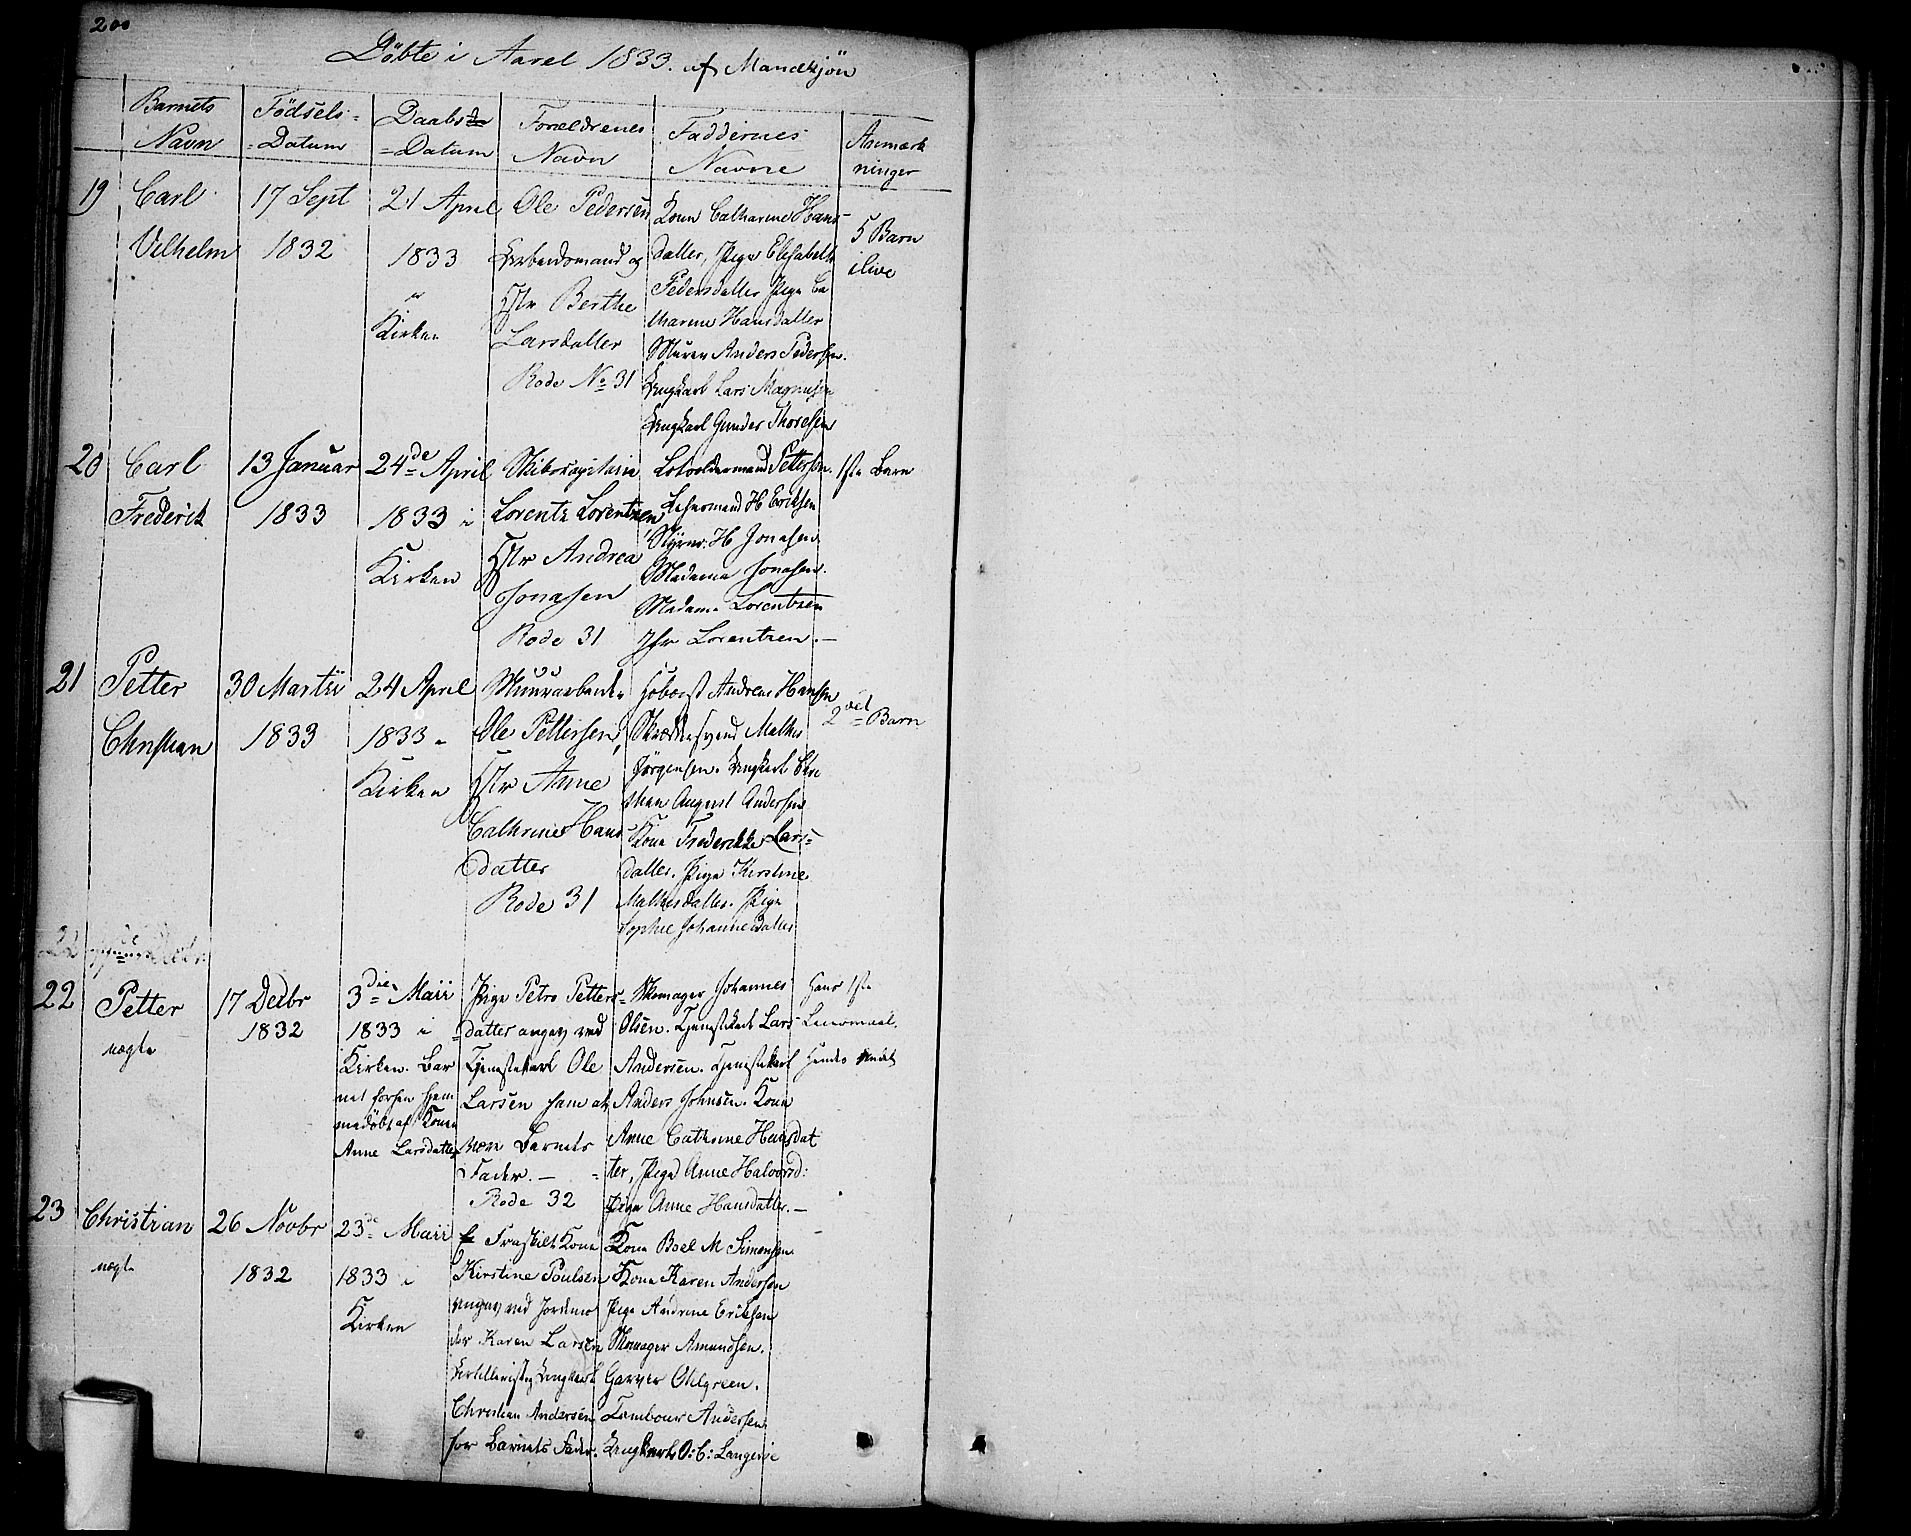 200
Döbte i Aaret 1833. af Mandkjön
Barnets Navn
Födsels-Datum
Daabs-Datum
Forældrenes Navn
Faddernes Navne
Anmærkninger
19
Carl
Vilhelm
17 Sept
1832
21 April
1833
Kirken
Ole Pedersen
Arbeidsmand og
Hstr Berthe
Larsdatter
Rode No 31
Kone Catharine Hans
datter, Pige Elisabeth
Pedersdatter Pige Ca
tharine Hansdatter
Murer Anders Pedersen.
Ungkarl Lars Magnusen
Ungkarl Gunder Thoresen
5 Barn
ilive
20
Carl
Frederik
13 Januar
1833
24de April
1833 i
Kirken
Skibscapitain
Lorentz Lorentzen,
Hstr Andrea
Jonasen
Rode 31
Lodsoldermand Pettersen.
H Eriksen
Styrm. H Jonasen
Madame Jonasen.
Madame Lorentzen
Jfr Lorentzen.—
1ste Barn
21
Petter
Christian
30 Martii
1833
24 April
1833
Kirken
Muurarbeid.
Ole Pettersen,
Hstr Anne
Cathrine Hans
datter
Rode 31
Andreas Hansen
Skræddersvend Mathis
Jörgensen. Ungkarl Chri
stian August Andersen
Kone Frederikke Lars=
datter. Pige Kirstine
Mathisdatter. Pige
Sophie Johannesdatter
2det Barn
22
22
Petter
uægte
17 Decbr
1832
3die Maii
1833 i
Kirken. Bar
net forhen hjem
medöbt af Kone
Anne Larsdatter
Pige Petro Petters=
datter angav ved
Tjenestekarl Ole
Larsen ham at
være Barnets
Fader.—
Rode 32
Skomager Johannes
Olsen. Tjenestekarl Lars
Andersen. Tjenestekarl
Anders Johnsen. Kone
Anne Cathrine Hansdat
ter, Pige Anne Halvorsd:
Pige Anne Hansdatter.—
Hans 1ste
Leiermaal.
Hendes Andet
23
Christian
uægte
26 Novbr
1832
23de Maii
1833 i
Kirken
Fraskilt Kone
Kirstine Poulsen
angav ved Jordemo
der Karen Larsen
Artillerist Ungkarl
Christian Andersen
for Barnets Fader.
Kone Boel M Simonsen
Kone Karen Andersen
Pige Andrine Eriksen
Skomager Amundsen.
Garver Ohlgreen.
Tambour Andersen.
Ungkarl O: C: Langerie